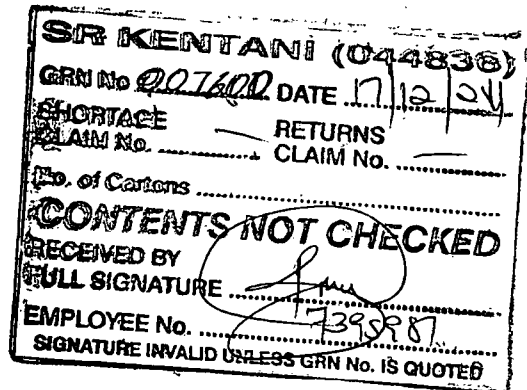 SR KENTANI (044838)
GRN No 007600 DATE 17/12/24
SHORTAGE CLAIM No. — RETURNS CLAIM No. —
No. of Cartons
CONTENTS NOT CHECKED
RECEIVED BY
FULL SIGNATURE
EMPLOYEE No. 7395987
SIGNATURE INVALID UNLESS GRN No. IS QUOTED